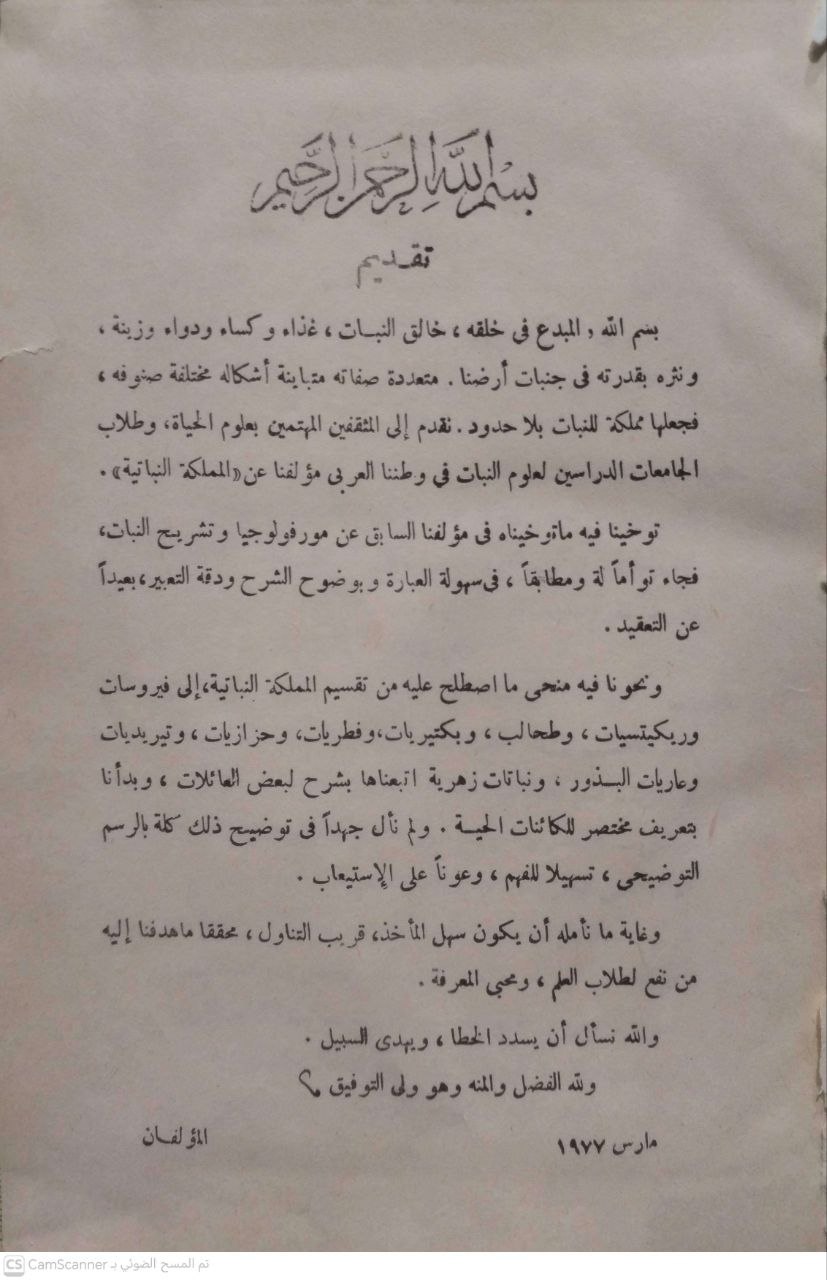 بسم الله الرحمن الرحيم
تقديم
بسم الله , المبدع فى خلقه ، خالق النبات ، غذاء وكساء ودواء وزينة ،
ونثره بقدرته فى جنبات أرضنا . متعددة صفاته متباينة أشكاله مختلفة صنوفه ،
فجعلها مملكة للنبات بلا حدود . نقدم إلى المثقفين المهتمين بعلوم الحياة، وطلاب
الجامعات الدراسين لعلوم النبات في وطننا العربى مؤلفنا عن «المملكة النباتية» .
توخينا فيه ماتوخيناه فى مؤلفنا السابق عن مورفولوجيا وتشريح النبات،
فجاء توأماً لة ومطابقاً ، فى سهولة العبارة وبوضوح الشرح ودقة التعبير، بعيداً
عن التعقيد .
ونحونا فيه منحى ما اصطلح عليه من تقسيم المملكة النباتية، إلى فيروسات
وريكيتسيات ، وطحالب ، وبكتيريات، وفطريات، وحزازيات ، وتيريديات
وعاريات البذور ، ونباتات زهرية اتبعناها بشرح لبعض العائلات ، وبدأنا
بتعريف مختصر للكائنات الحية . ولم نأل جهداً فى توضيح ذلك كلة بالرسم
التوضيحى ، تسهيلا للفهم ، وعوناً على الإستيعاب .
وغاية ما نأمله أن يكون سهل المأخذ، قريب التناول ، محققا ماهدفنا إليه
من نفع لطلاب العلم ، ومحبى المعرفة .
والله نسأل أن يسدد الخطا ، ويهدى السبيل .
ولله الفضل والمنه وهو ولى التوفيق ؟
مارس ١٩٧٧ المؤلفان
CS CamScanner تم المسح الضوئي بـ